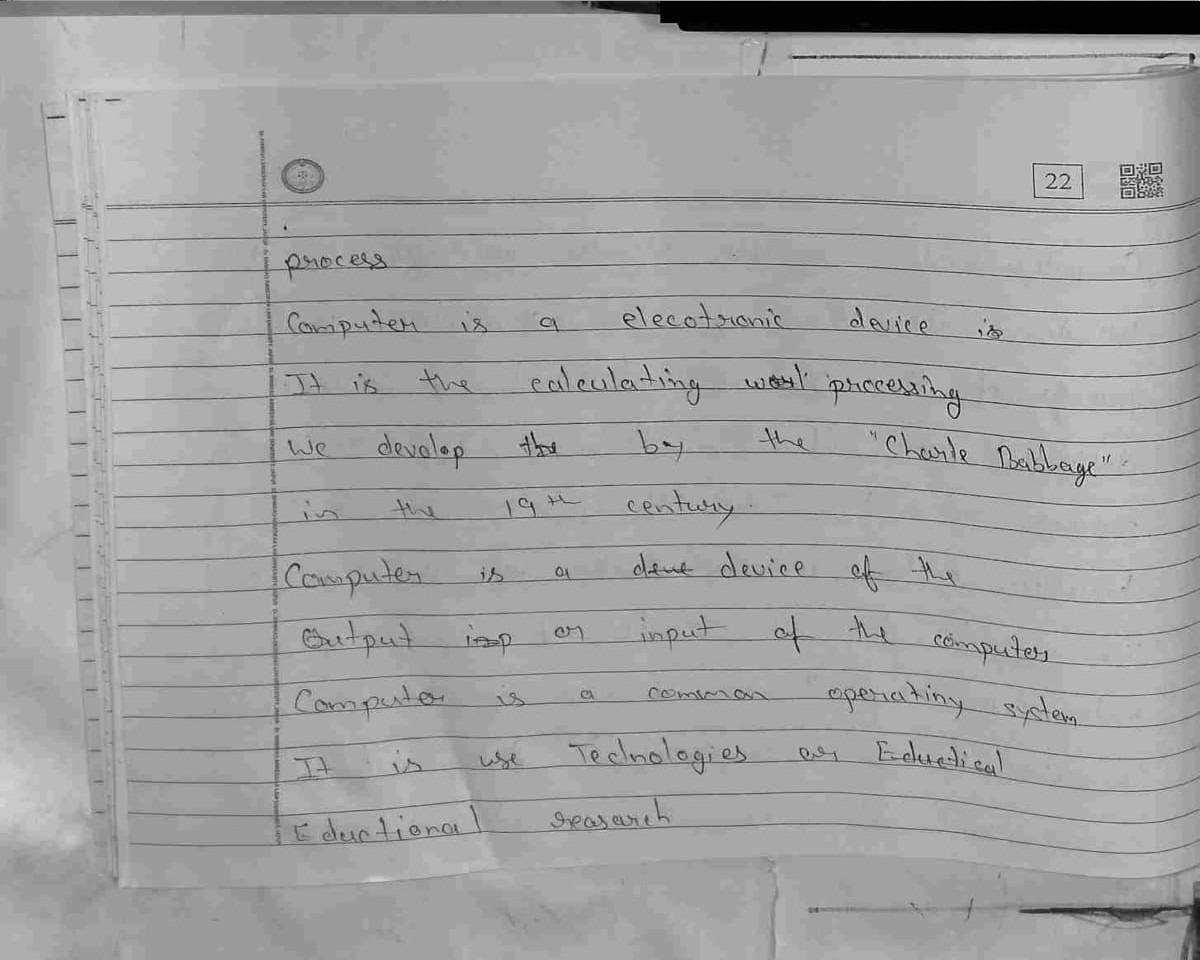 22
process
Computer is a elecotronic device is
It is the calculating work processing
We develop the by the "Charle Babbage"
in the 19th century.
Computer is a device of the
Output inp or input of the computer
Computer is a common operatiny system
It is use Technologies or Eductical
Eductional reasarch